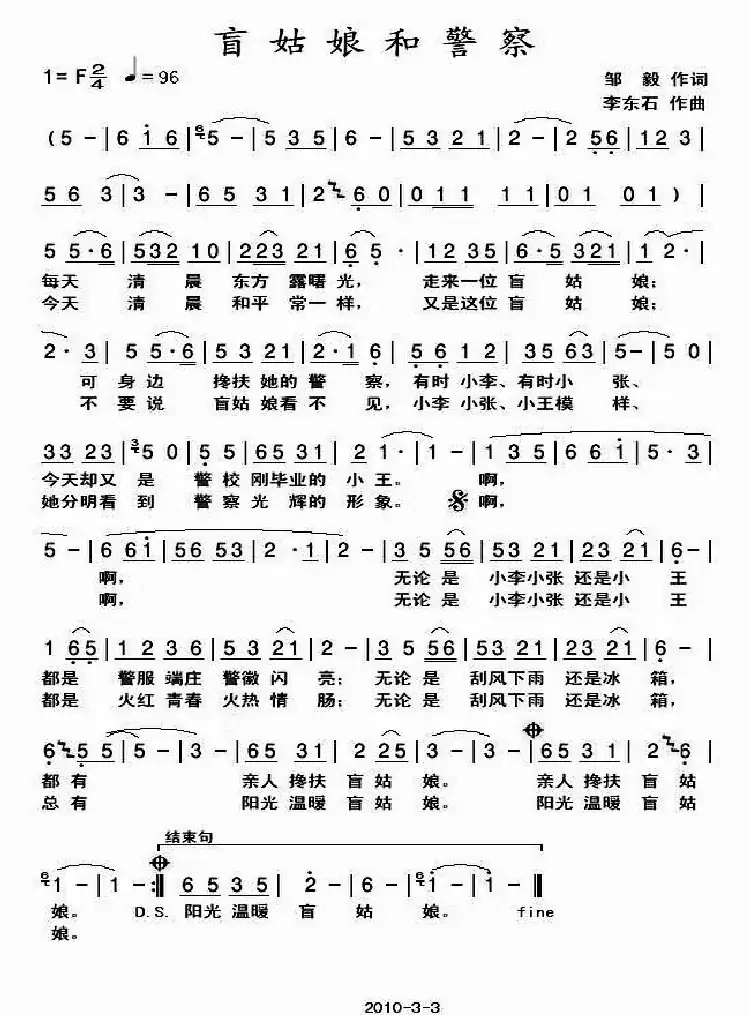 盲姑娘和警察
1=F 2/4 ♩=96 邹 毅 作词
李东石 作曲
(5 -|6 i 6|5 -|5 3 5|6 -|5 3 2 1|2 -|2 5 6|1 2 3|
5 6 3|3 -|6 5 3 1|2 6 0|0 1 1 1 1|0 1 0 1)|
5 5·6|5 3 2 1 0|2 2 3 2 1|6 5·|1 2 3 5|6·5 3 2 1|1 2·|
每天 清 晨 东方 露曙 光, 走来一位 盲 姑 娘;
今天 清 晨 和平 常一 样, 又是这位 盲 姑 娘;
2·3|5 5·6|5 3 2 3|2·1 6|5 6 1 2|3 5 6 3|5 -|5 0|
可 身边 搀扶 她的 警 察, 有时 小李、有时小 张、
不 要说 盲姑 娘看 不 见, 小李 小张、小王模 样、
3 3 2 3|5 0|5 5|6 5 3 1|2 1·|1 -|1 3 5|6 6 i|5·3|
今天却又 是 警 校 刚毕业的 小 王。 啊,
她分明看 到 警 察 光 辉的 形 象。 啊,
5 -|6 6 i|5 6 5 3|2·1|2 -|3 5 5 6|5 3 2 1|2 3 2 1|6 -|
啊, 无论 是 小李小张 还是小 王
啊, 无论 是 小李小张 还是小 王
1 6 5|1 2 3 6|5 3 2 1|2 -|3 5 5 6|5 3 2 1|2 3 2 1|6 -|
都是 警服 端庄 警徽 闪 亮; 无论 是 刮风下雨 还是冰 箱,
都是 火红 青春 火热 情 肠; 无论 是 刮风下雨 还是冰 箱,
6 5 5|5 -|3 -|6 5 3 1|2 2 5|3 -|3 -|6 5 3 1|2 6|
都有 亲人 搀扶 盲姑 娘。 亲人 搀扶 盲姑
总有 阳光 温暖 盲姑 娘。 阳光 温暖 盲姑
结束句
1 -|1 -:‖6 5 3 5|2 -|6 -|1 -|1 -‖
娘。 D.S. 阳光 温暖 盲 姑 娘。 fine
娘。
2010-3-3